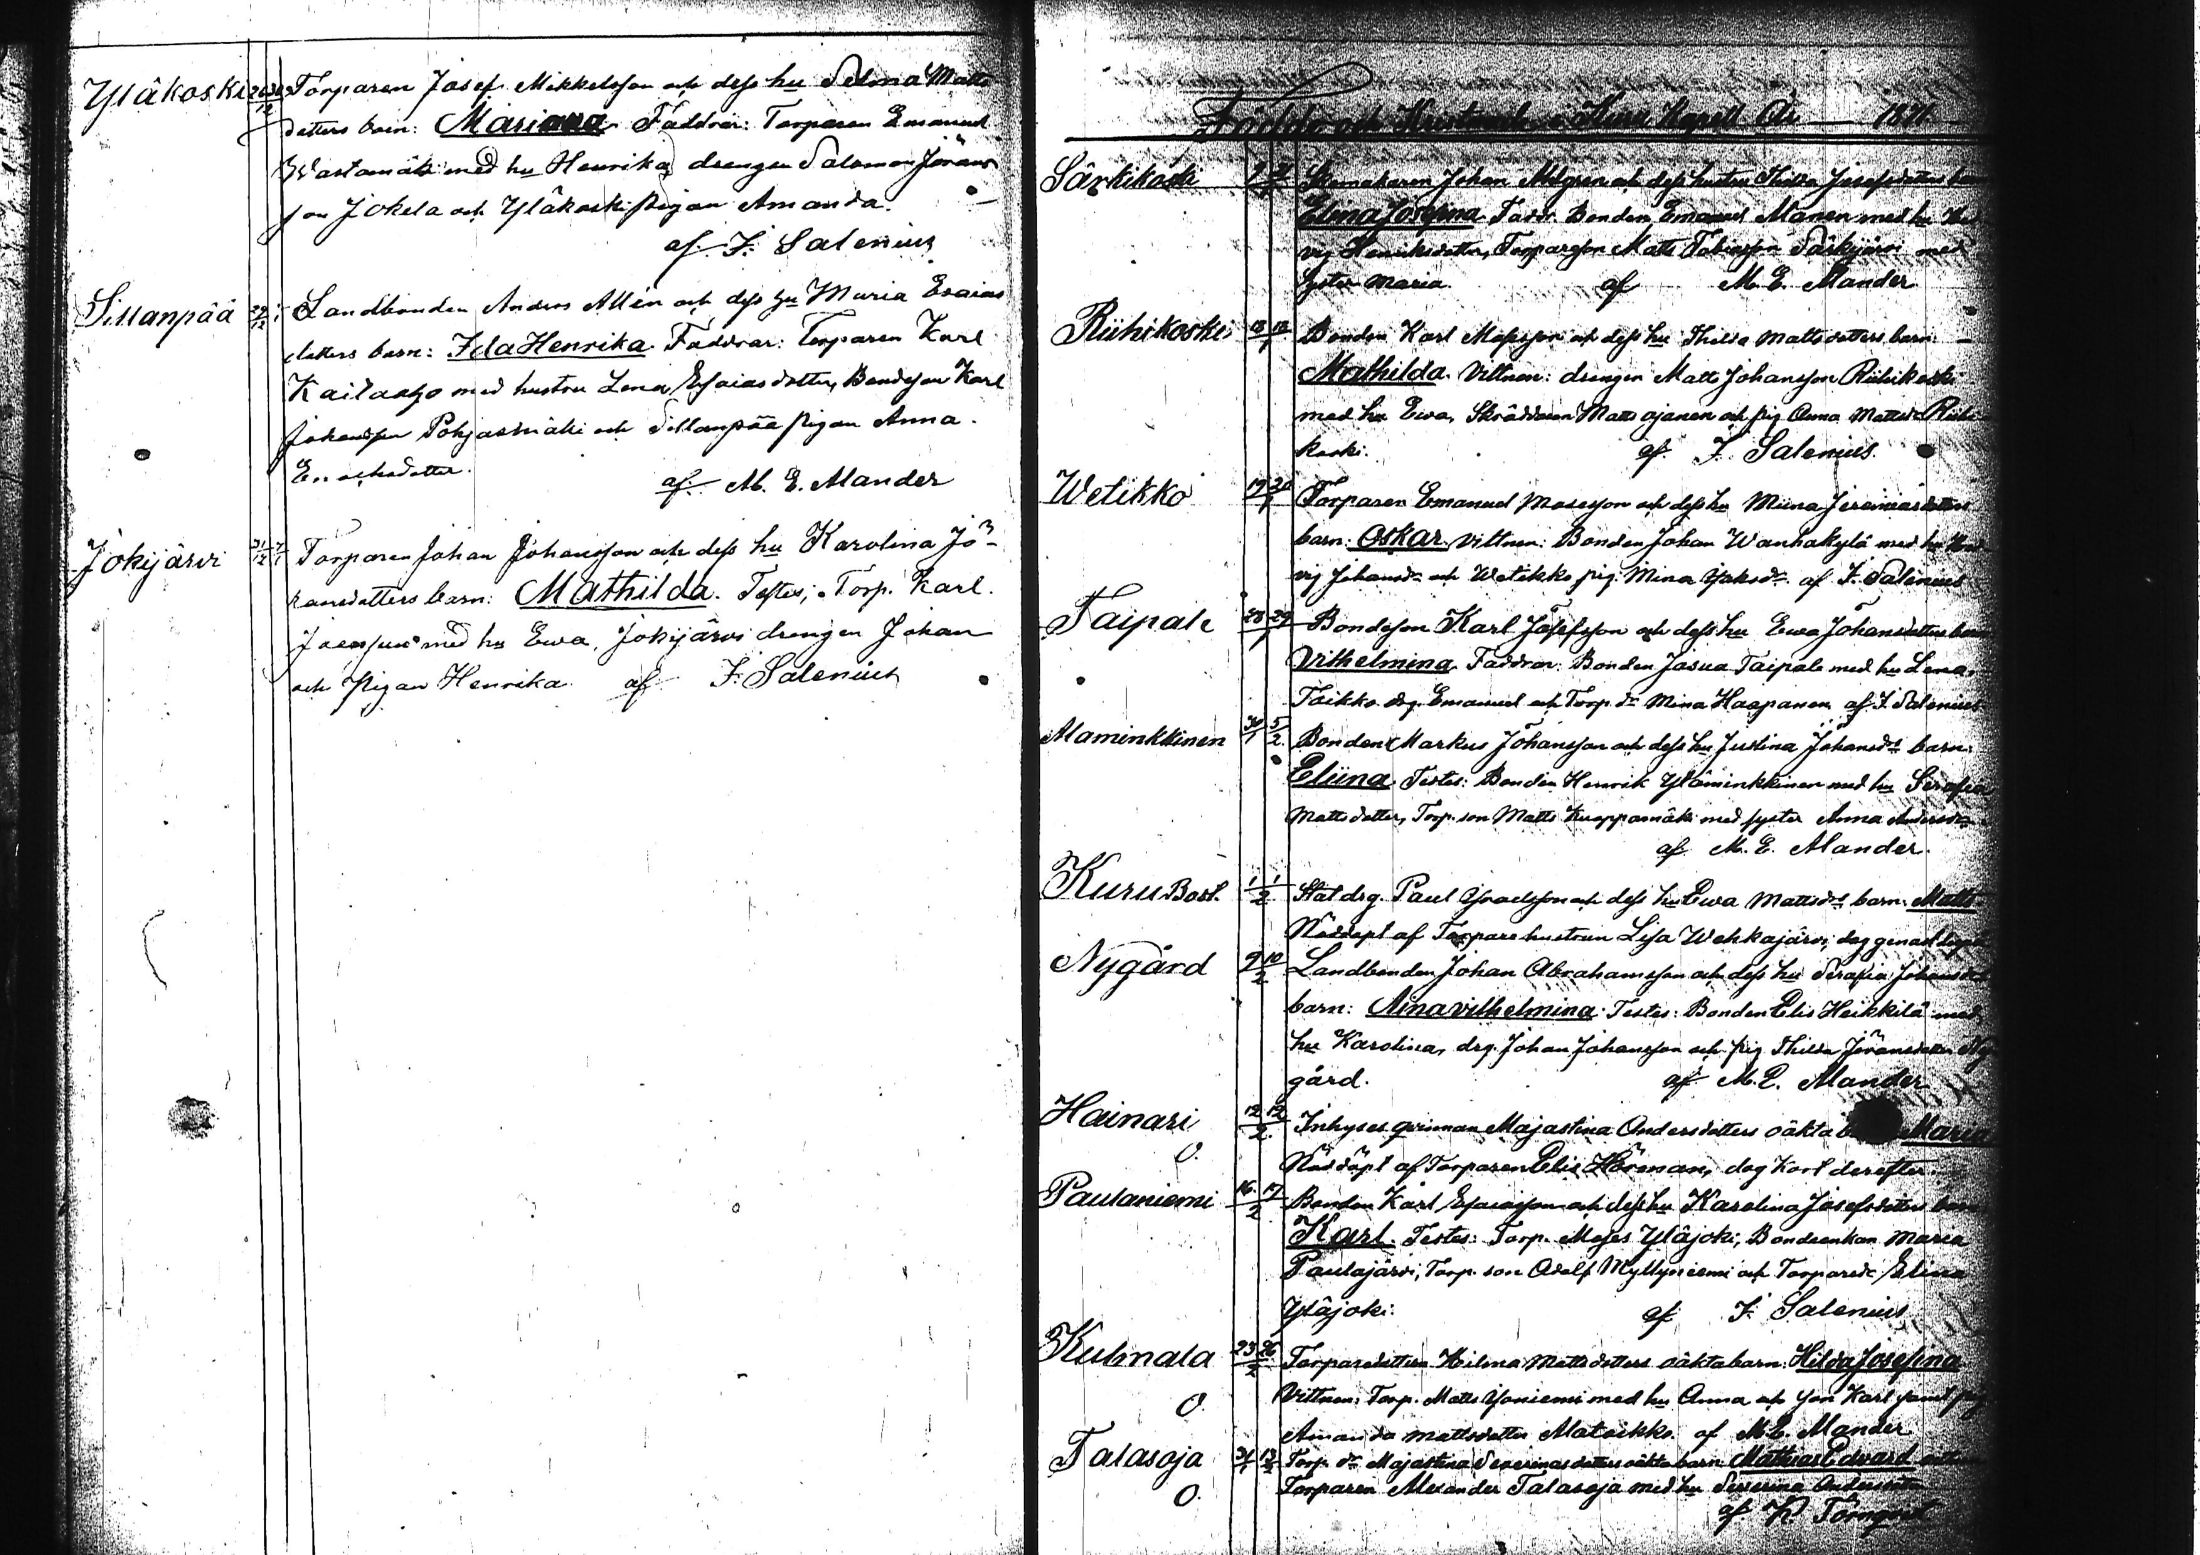 Yläkoski Torparen Josef Mikkelsson och dess hu Selma Matts
dotters barn: Mariana Faddrar: Torparen Emanuel
Wastamäki med hu Henrika drengen Salomon Jörans
son Jokela och Yläkoski pigan Amanda.
af F. Salenius
Sillanpää 29/12 Landbonden Anders Allén och dess hu Maria Esaias
dotters barn: Ida Henrika. Faddrar: Torparen Karl
Kailasto med hustru Lena Esaiasdotter, Bondeson Karl
Johansson Pohjasmäki och Sillanpää pigan Anna
Enochsdotter. af M. E. Mander
Jokijärvi 31/12 7/1 Torparen Johan Johansson och dess hu Karolina Jö-
ransdotters barn: Mathilda. Testes; Torp. Karl
med hu Ewa, Jokijärvi drengen Johan
och Pigan Henrika af F. Salenius
Födde och Kristnade i Kuru Kapell År 1871
Särkikoski Skomakaren Johan Malgren och dess hustru Thilda Josefsdotters barn
Elina Josefina Faddr. Bonden Emanuel Manen med hu Hed
vig Henriksdotter, Torpareson Matts Tobiasson Särkijärvi med
Syster Maria af M. E. Mander
Riihikoski 13/1 Bonden Karl Mosesson och dess hu Thilda Mattsdotters barn
Mathilda. Vittnen: drengen Matts Johansson Riihikoski
med hu Ewa, Skräddaren Matts Ojanen och pig. Anna Mattsdr Riihi
koski. af F. Salenius.
Wetikko 19/1 20 Torparen Emanuel Mosesson och dess hu Miina Jeremiasdotters
barn: Oskar. Vittnen: Bonden Johan Wanhakylä med hu Hed
vig Johansdr och Wetikko pig. Mina Isaksdr af F. Salenius
Taipale 28/1 29 Bondeson Karl Josefsson och dess hu Ewa Johansdotters barn
Vilhelmina Faddrar: Bonden Josua Taipale med hu Lena,
Taikko drg. Emanuel och Torp.dr Mina Haapanen af F. Salenius
Alaminkkinen 30/1 5/2 Bonden Markus Johansson och dess hu Justina Johansdr barn:
Eliina Testes: Bonden Henrik Yläminkkinen med hu Serafia
Mattsdotter, Torp. son Matts Kuappamäki med syster Anna Andersdr
af M. E. Mander.
Kuru Bost. 1/2 Stat drg. Paul Israelsson och dess hu Ewa Mattsdr barn. Matts
Nöddöpt af Torparehustrun Lisa Wehkajärvi, dog genast
Nygård 9/2 10 Landbonden Johan Abrahamsson och dess hu Serafia Johansdr
barn: Aina Vilhelmina. Testes: Bonden Elis Heikkilä med
hu Karolina, drg. Johan Johansson och pig Thilda Jöransdotter Ny
gård. af M. E. Mander
Hainari 12/2 12 Inhyses qvinnan Majastina Andersdotters oäkta Maria
O. Nöddöpt af Torparen Elis Höreman, dog kort derefter
Paulaniemi 16/2 17 Bonden Karl Esaiasson och dess hu Karolina Josefsdotters barn
Karl. Testes: Torp. Moses Yläjoki, Bondeenkan Maria
Paulajärvi, Torp. son Adolf Myllyniemi och Toparedr Elina
Yläjoki: af F. Salenius
Kulmala 23/2 26 Torparedottern Hilma Mattsdotters oäkta barn. Hilda Josefina
O. Vittnen: Torp. Matts Isoniemi med hu Anna och son Karl samt pig
Amanda Mattsdotter Mataikko. af M. E. Mander
Talasoja 31/1 Torp. dr Majastina Severinasdotters oäkta barn Mathias Edvard
O. Torparen Alexander Talasoja med hu Severina Andersdr
af K Törnqvist